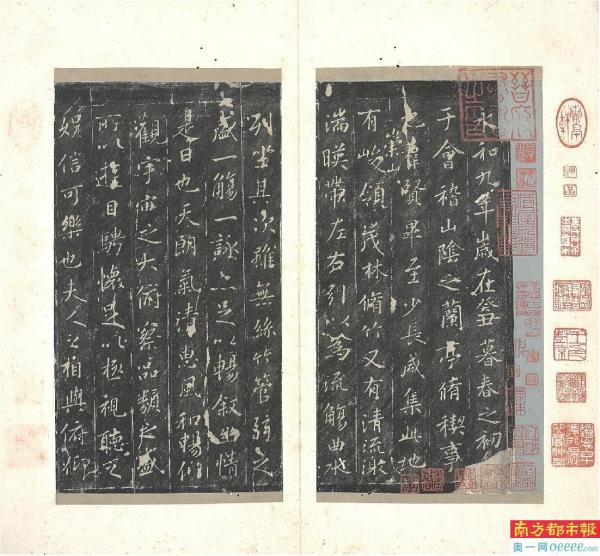 永和九年歲在癸丑暮春之初
于會稽山陰之蘭亭脩稧事
也羣賢畢至少長咸集此地
崇山
有峻領茂林脩竹又有清流激
湍暎帶左右引以為流觴曲水
列坐其次雖無絲竹管弦之
盛一觴一詠亦足以暢敘幽情
是日也天朗氣清惠風和暢仰
觀宇宙之大俯察品類之盛
所以遊目騁懷足以極視聽之
娛信可樂也夫人之相與俯仰
南方都市報
奥一网oeeee.com